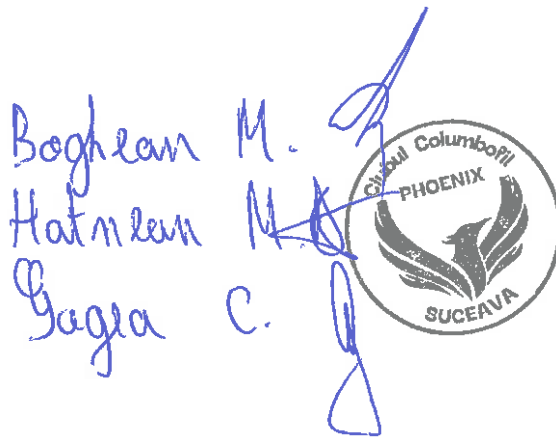 Boghean M.
Hatnean M.
Gagea C.
Clubul Columbofil
PHOENIX
SUCEAVA